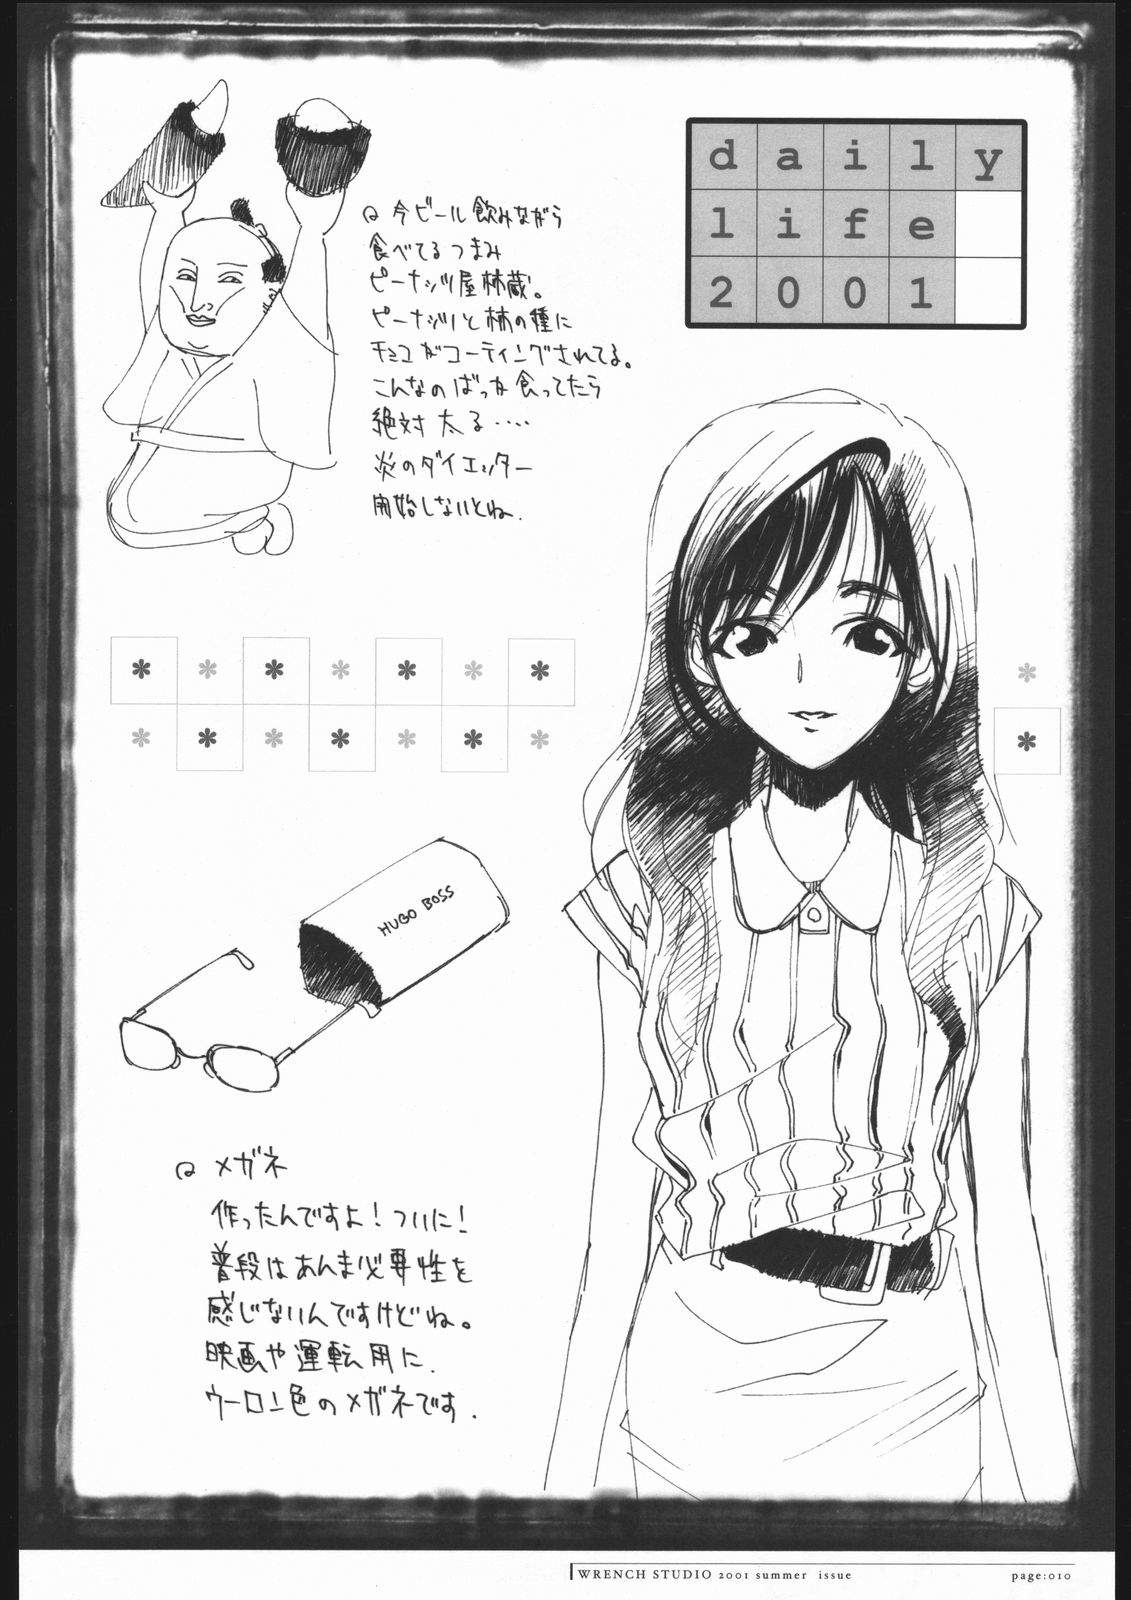 daily
life
2001
今ビール飲みながら
食べてるつまみ
ピーナッツ屋林蔵。
ピーナッツと柿の種に
チョコがコーティングされてる。
こんなのばっか食ってたら
絶対太る‥‥
炎のダイエッター
開始しないとね.
HUGO BOSS
メガネ
作ったんですよ！ついに！
普段はあんま必要性を
感じないんですけどね。
映画や運転用に.
ウーロン色のメガネです.
WRENCH STUDIO 2001 summer issue
page:010